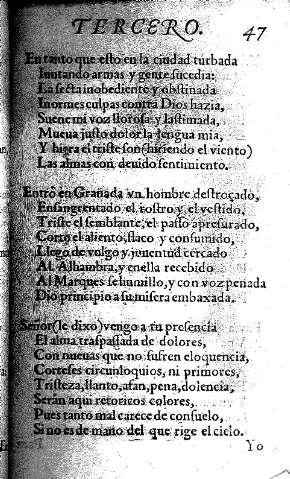 TERCERO. 47
En tanto que esto en la ciudad turbada
Iuntando armas y gente sucedia:
La secta inobediente y obstinada
Inormes culpas contra Dios hazia,
Suene mi voz llorosa y lastimada,
Mueua justo dolor la lengua mia,
Y hiera el triste son (hiriendo el viento)
Las almas con deuido sentimiento.
Entrò en Granada vn hombre destroçado,
Ensangrentado el rostro y el vestido,
Triste el semblante, el passo apresurado,
Corto el aliento, flaco y consumido,
Llegò de vulgo y juuentud cercado
Al Alhambra, y en ella recebido
Al Marques se humillo, y con voz penada
Dio principio a su misera embaxada.
Señor (le dixo) vengo a tu presencia
El alma traspassada de dolores,
Con nueuas que no sufren eloquencia,
Corteses circunloquios, ni primores,
Tristeza, llanto, afan, pena, dolencia,
Seràn aqui retoricos colores,
Pues tanto mal carece de consuelo,
Si no es de mano del que rige el cielo.
Yo